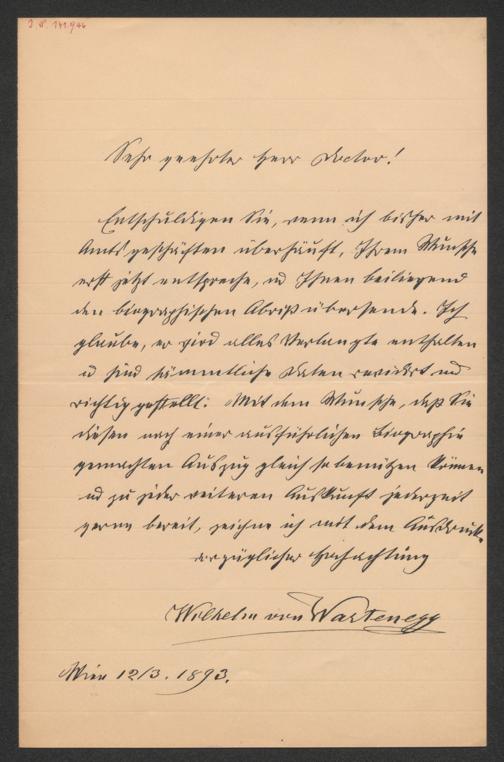 I. N. 142.946
Sehr geehrter Herr Doctor!
Entschuldigen Sie, wenn ich bisher mit
Amtsgeschäften überhäuft, Ihrem Wunsche
erst jetzt entspreche, und Ihnen beiliegend
den biographischen Abriß übersende. Ich
glaube, er wird alles Verlangte enthalten
und sind sämmtliche Daten revidirt und
richtig gestellt. Mit dem Wunsche, daß Sie
diesen nach einer ausführlichen Biographie
gemachten Auszug gleich so benützen können
und zu jeder weiteren Auskunft jederzeit
gerne bereit, zeichne ich mit dem Ausdrucke
vorzüglicher Hochachtung
Wilhelm von Wartenegg
Wien 12/3. 1893.